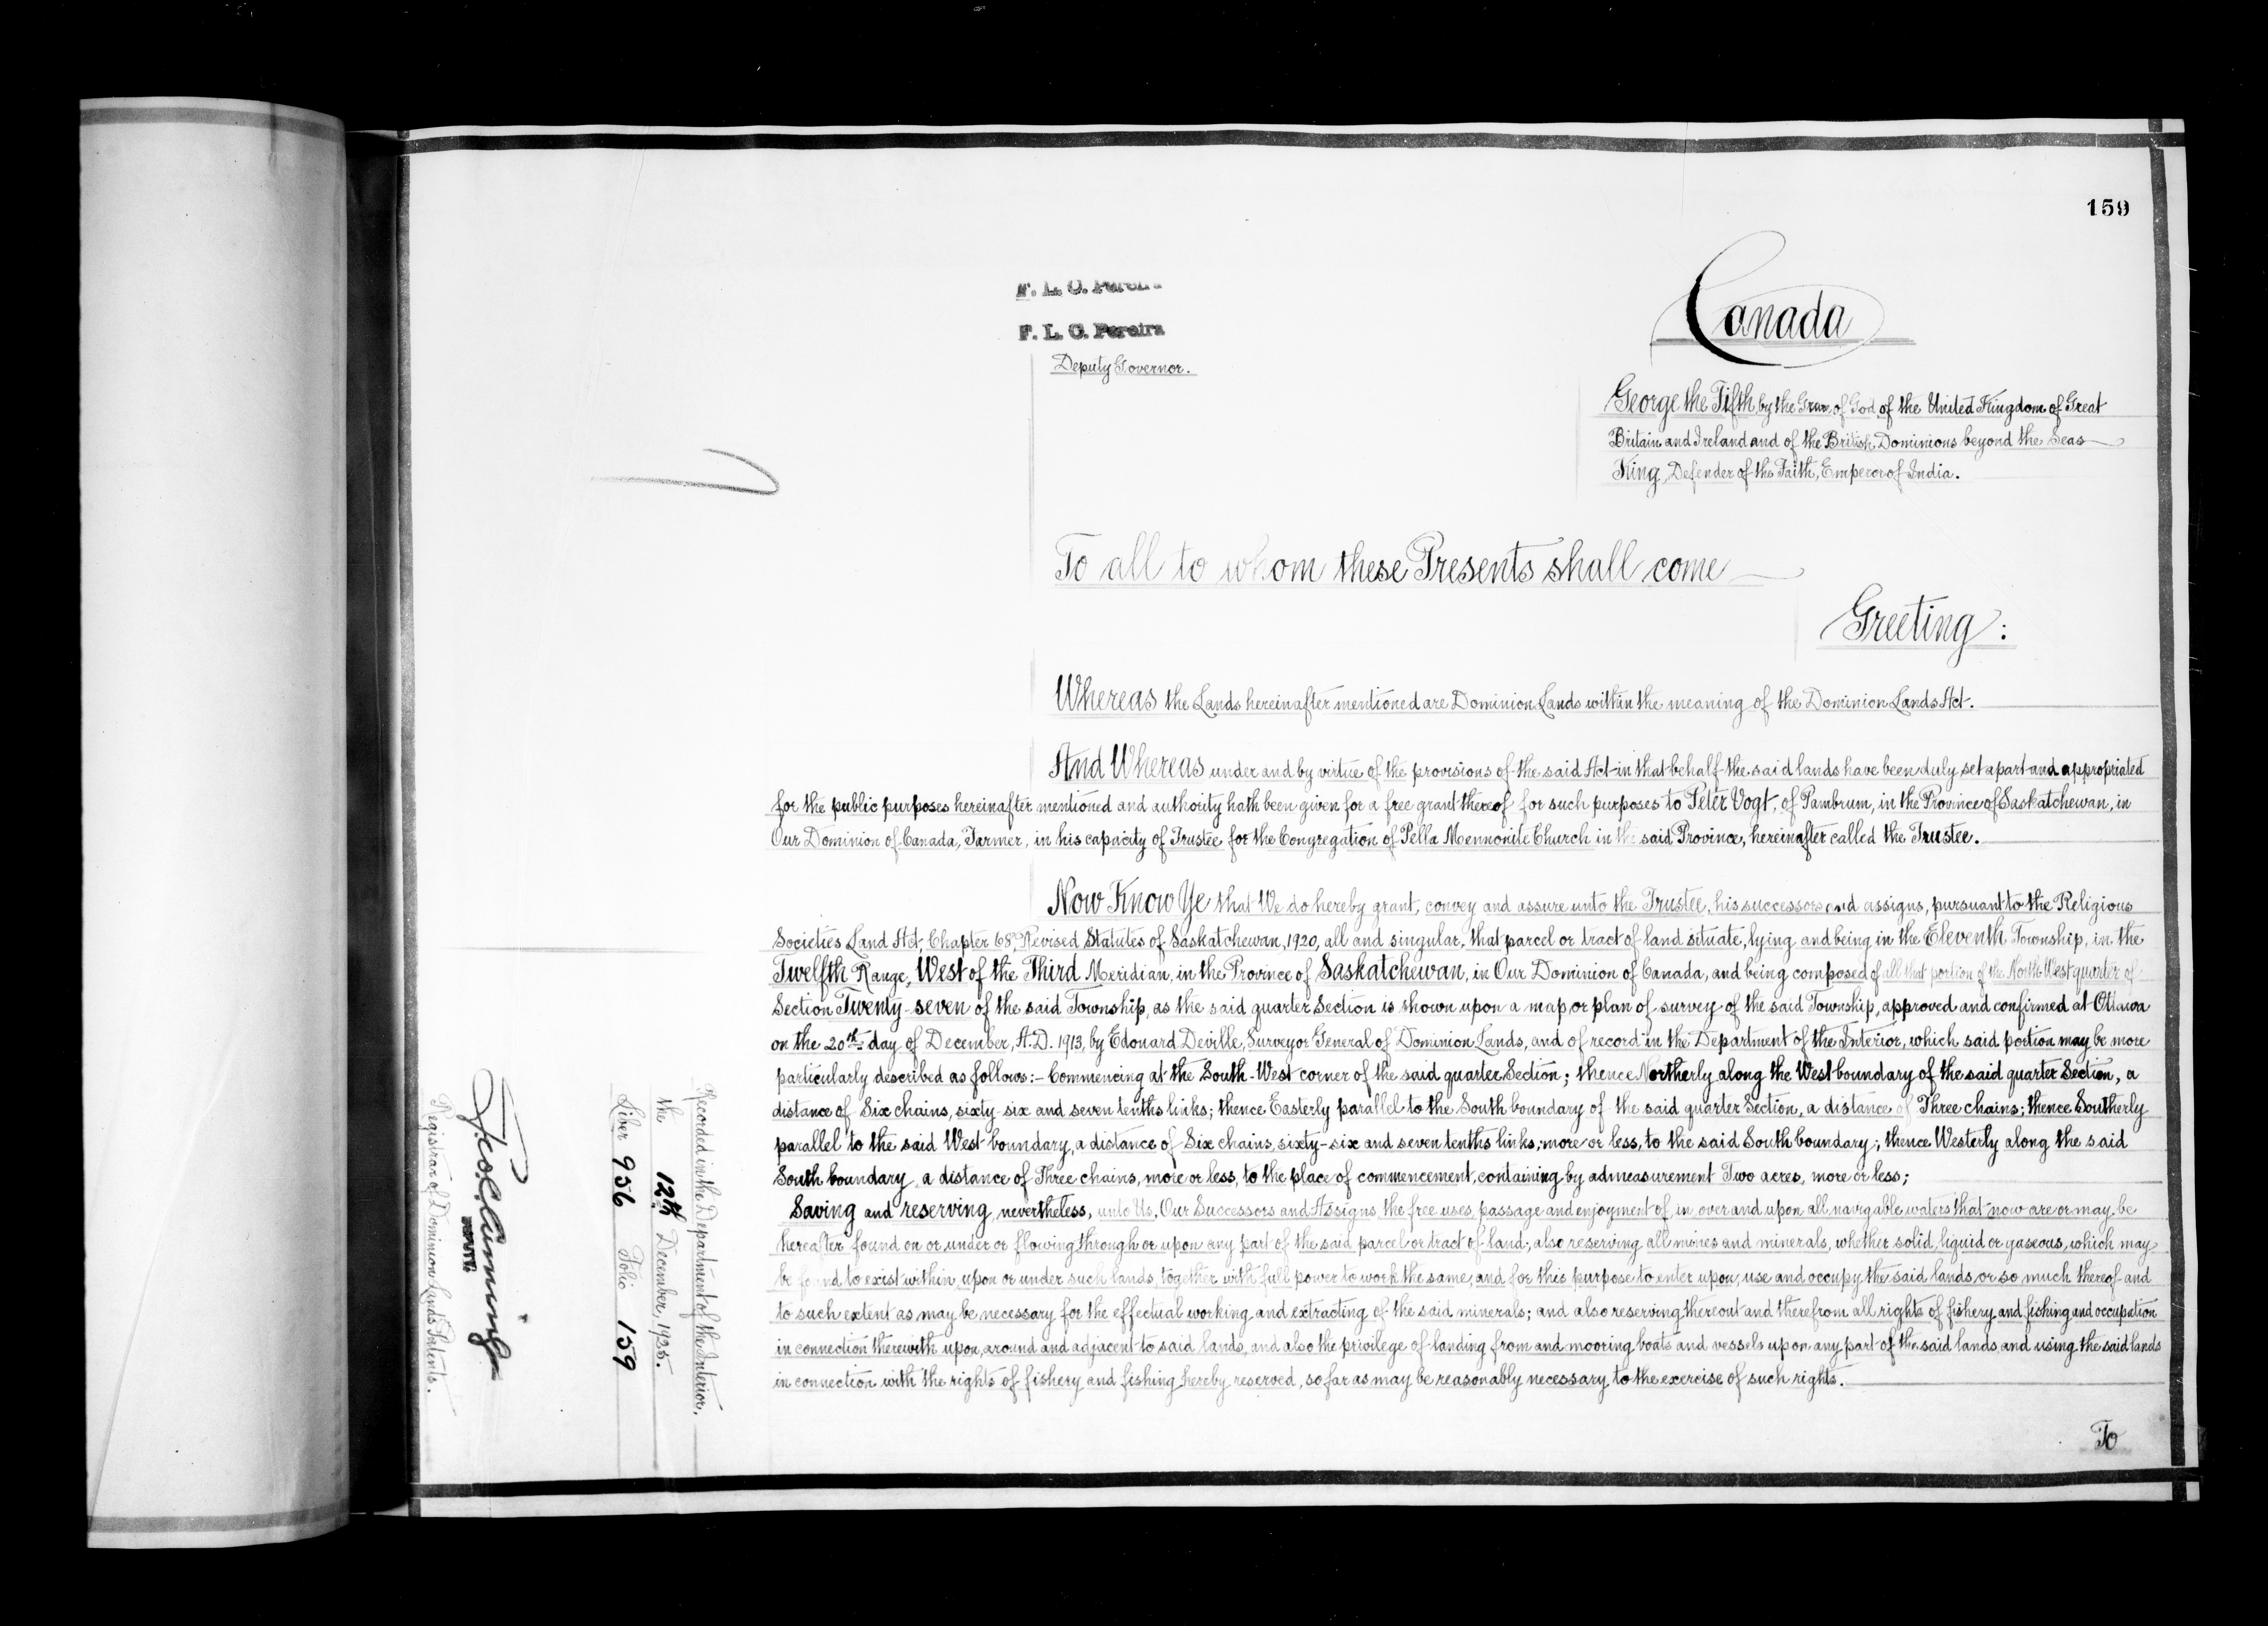 159
F. L. C. Pereira
F. L. C. Pereira
Deputy Governor.
Canada
George the Fifth by the Grace of God of the United Kingdom of Great
Britain and Ireland and of the British Dominions beyond the Seas
King, Defender of the Faith, Emperor of India.
To all to whom these Presents shall come
Greeting:
Whereas the Lands hereinafter mentioned are Dominion Lands within the meaning of the Dominion Lands Act.
And Whereas under and by virtue of the provisions of the said Act in that behalf the said lands have been duly set apart and appropriated
for the public purposes hereinafter mentioned and authority hath been given for a free grant thereof for such purposes to Peter Vogt, of Pambrum, in the Province of Saskatchewan, in
Our Dominion of Canada, Farmer, in his capacity of Trustee for the Congregation of Pella Mennonite Church in the said Province, hereinafter called the Trustee.
Now Know Ye that We do hereby grant, convey and assure unto the Trustee, his successors and assigns, pursuant to the Religious
Societies Land Act, Chapter 68, Revised Statutes of Saskatchewan, 1920, all and singular, that parcel or tract of land situate, lying and being in the Eleventh Township, in the
Twelfth Range, West of the Third Meridian, in the Province of Saskatchewan, in Our Dominion of Canada, and being composed of all that portion of the North-West quarter of
Section Twenty-seven of the said Township, as the said quarter Section is shown upon a map or plan of survey of the said Township, approved and confirmed at Ottawa
on the 20th day of December, A.D. 1913, by Edouard Deville, Surveyor General of Dominion Lands, and of record in the Department of the Interior, which said portion may be more
particularly described as follows:- Commencing at the South-West corner of the said quarter Section; thence Northerly along the West boundary of the said quarter Section, a
distance of Six chains, sixty-six and seven tenths links; thence Easterly parallel to the South boundary of the said quarter Section, a distance of Three chains; thence Southerly
parallel to the said West boundary, a distance of Six chains, sixty-six and seven tenths links, more or less, to the said South boundary; thence Westerly along the said
South boundary, a distance of Three chains, more or less, to the place of commencement, containing by admeasurement Two acres, more or less;
Saving and reserving, nevertheless, unto Us, Our Successors and Assigns, the free uses, passage and enjoyment of, in, over and upon all navigable waters that now are or may be
hereafter found on or under or flowing through or upon any part of the said parcel or tract of land; also reserving all mines and minerals, whether solid, liquid or gaseous, which may
be found to exist within, upon or under such lands, together with full power to work the same, and for this purpose to enter upon, use and occupy the said lands or so much thereof and
to such extent as may be necessary for the effectual working and extracting of the said minerals; and also reserving thereout and therefrom all rights of fishery and fishing and occupation
in connection therewith upon, around and adjacent to said lands, and also the privilege of landing from and mooring boats and vessels upon any part of the said lands and using the said lands
in connection with the rights of fishery and fishing hereby reserved, so far as may be reasonably necessary to the exercise of such rights.
To
Recorded in the Department of the Interior,
the 12th December, 1925.
Liber 956 Folio 159
DEPUTY
Registrar of Dominion Lands Patents.